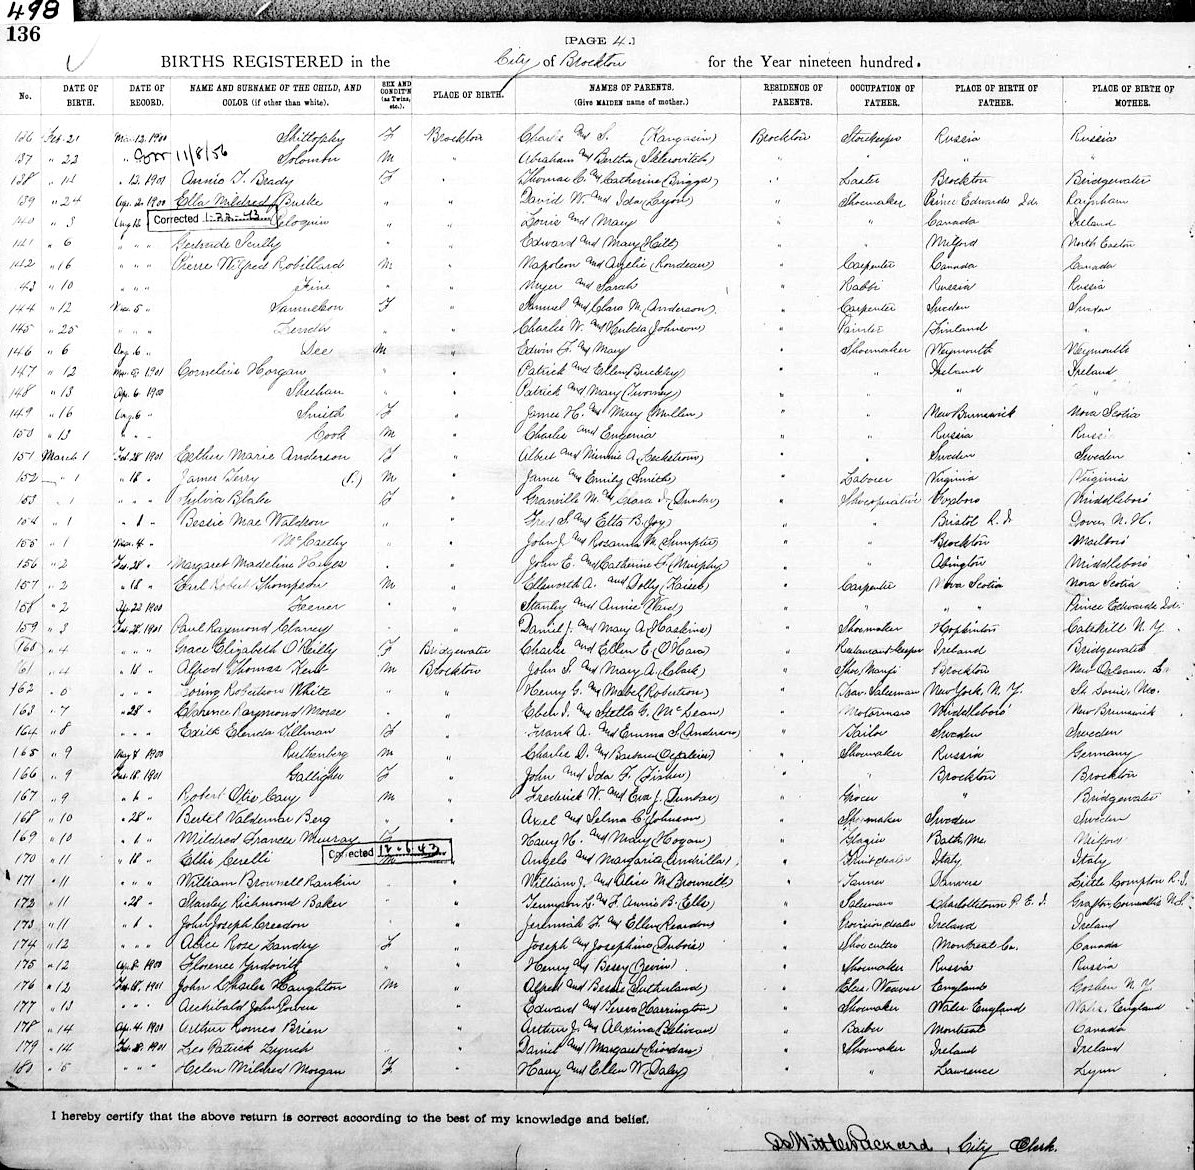 498
136
[PAGE 4.]
BIRTHS REGISTERED in the City of Brockton for the Year nineteen hundred.
No. DATE OF BIRTH. DATE OF RECORD. NAME AND SURNAME OF THE CHILD, AND COLOR (if other than white). SEX AND CONDIT'N (as Twins, etc.). PLACE OF BIRTH. NAMES OF PARENTS. (Give MAIDEN name of mother.) RESIDENCE OF PARENTS. OCCUPATION OF FATHER. PLACE OF BIRTH OF FATHER. PLACE OF BIRTH OF MOTHER.
136 Feb 21 Mar 12 1900 F Brockton Charles and S. Brockton Storekeeper Russia Russia
137 " 22 " Corr 11/8/56 Solomon M " Abraham and Bertha " " " "
138 " 14 " 12. 1901 Annie T. Brady F " Thomas C. and Catherine (Briggs) " Laster Brockton Bridgewater
139 " 24 Apr 2. 1900 Ella Mildred Burke " " David W. and Ida (Lyon) " Shoemaker Prince Edwards Isd. Raynham
140 " 3 Aug 16 Corrected 1-22-43 Peloquin " " Louis and Mary " " Canada Ireland
141 " 6 " " " Gertrude Scully " " Edward and Mary (Hill) " " Milford North Easton
142 " 16 " " " Pierre Wilfred Robillard M " Napoleon and Azelie (Rondeau) " Carpenter Canada Canada
143 " 10 " " " Fine " " Myer and Sarah " Rabbi Russia Russia
144 " 12 Nov 5 " Samuelson F " Samuel and Clara M. (Anderson) " Carpenter Sweden Sweden
145 " 25 " " " " " Charles W. and Hulda (Johnson) " Painter Finland "
146 " 6 Aug 6 " Lee M " Edwin F. and Mary " Shoemaker Weymouth Weymouth
147 " 12 1901 Cornelius Horgan " " Patrick and Ellen (Buckley) " " Ireland Ireland
148 " 13 Apr 6. 1900 Sheehan " " Patrick and Mary (Twomey) " " " "
149 " 16 Aug 6 " Smith F " James H. and Mary (Mullen) " " New Brunswick Nova Scotia
150 " 13 " " " Cook M " Charles and Eugenia " " Russia Russia
151 March 1 Feb 28 1901 Esther Marie Anderson F " Albert and Minnie A. (Backstrom) " " Sweden Sweden
152 " 1 " 18 " James Terry M " James and Emily (Smith) " Laborer Virginia Virginia
153 " 1 " " " Sylvia Blake F " Granville M. and Clara J. (Dunbar) " Shoeoperative Foxboro Middleboro
154 " 1 " 1 " Bessie Mae Waldron " " Fred S. and Etta B. (Joy) " " Bristol R.I. Dover N.H.
155 " 1 Mar 4 " McCarthy " " John J. and Rosanna M. (Sumpter) " " Brockton Marlboro
156 " 2 Feb 28 " Margaret Madeline Hayes " " John E. and Catherine F. (Murphy) " " Abington Middleboro
157 " 2 " 18 " Earl Robert Thompson M " Ellsworth A. and Dolly (Kaiser) " Carpenter Nova Scotia Nova Scotia
158 " 2 Apr 23 1900 Feener " " Stanley and Annie (Ward) " " " " Prince Edwards Isd.
159 " 3 Feb 28, 1901 Paul Raymond Clancy " " Daniel J. and Mary A. (Haskins) " Shoemaker Hopkinton Catskill N.Y.
160 " 4 " " " Grace Elizabeth O'Reilly F Bridgewater Charles and Ellen E. (O'Hara) " Restaurant keeper Ireland Bridgewater
161 " 4 " 18 " Alfred Thomas Kent M Brockton John S. and Mary A. (Clark) " Shoe Manf'r Brockton New Orleans. La
162 " 6 " " " Loring Robertson White " " Henry G. and Mabel (Robertson) " Trav. Salesman New York N.Y. St Louis, Mo.
163 " 7 " 28 " Clarence Raymond Morse " " Eben I. and Stella G. (McLean) " Motorman Middleboro New Brunswick
164 " 8 " " " Edith Elenda Sillman F " Frank A. and Emma S. (Anderson) " Tailor Sweden Sweden
165 " 9 May 8 1900 Ruthenberg M " Charles D. and Barbara " Shoemaker Russia Germany
166 " 9 Feb 18 1901 Galligher F " John and Ida F. (Fisher) " " Brockton Brockton
167 " 9 " 6 " Robert Otis Cary M " Frederick W. and Eva J. (Dunbar) " Grocer " Bridgewater
168 " 10 " 28 " Bertel Valdemar Berg " " Axel and Selma C. (Johnson) " Shoemaker Sweden Sweden
169 " 10 " 6 " Mildred Frances Murray F " Harry H. and Mary (Hogan) " Glazier Bath Me. Milford
170 " 11 " 18 " Ellis Cerelli Corrected 12-6-43 M " Angelo and Margarita (Andrilla) " Fruit dealer Italy Italy
171 " 11 " " " William Brownell Rankin " " William J. and Alice M. (Brownell) " Tanner Danvers Little Compton R.I.
172 " 11 " 28 " Stanley Richmond Baker " " Tennyson L. and F. Annie B. (Ells) " Salesman Charlottetown P.E.I. Grafton Cornwallis N.S.
173 " 11 " 6 " John Joseph Creedon " " Jeremiah F. and Ellen (Reardon) " Provision dealer Ireland Ireland
174 " 12 " " " Alice Rose Landry F " Joseph and Josephine (Dubois) " Shoe cutter Montreal Ca. Canada
175 " 12 Apr 8. 1900 Florence Yudovitz " " Henry and Bessy (Levin) " Shoemaker Russia Russia
176 " 12 Feb 18, 1901 John Charles Haughton M " Alfred and Bessie (Sutherland) " Elas. Weaver England Goshen N.Y.
177 " 13 " " " Archibald John " " Edward and Teresa (Harrington) " Shoemaker Wales England Wales England
178 " 14 Apr. 4. 1900 Arthur Romeo Brien " " Arthur J. and Alexina (Beliveau) " Barber Montreal Canada
179 " 14 Feb 28. 1901 Leo Patrick Lynch " " Daniel and Margaret (Riordan) " Shoemaker Ireland Ireland
180 " 5 " " " Helen Mildred Morgan F " Harry and Ellen W. (Daley) " " Lawrence Lynn
I hereby certify that the above return is correct according to the best of my knowledge and belief.
DeWitt C. Packard, City Clerk.